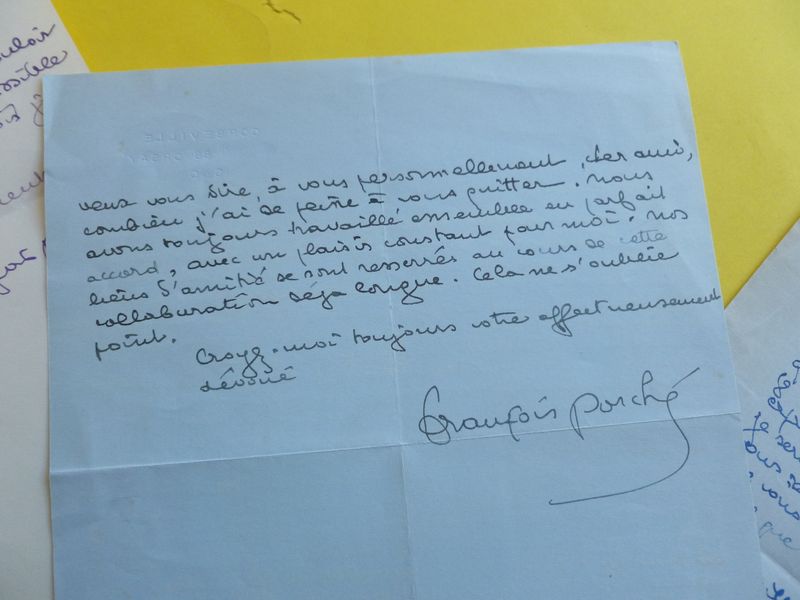 veux vous dire, à vous personnellement, cher ami,
combien j'ai de peine à vous quitter. Nous
avons toujours travaillé ensemble en parfait
accord, avec un plaisir constant pour moi. Nos
liens d'amitié se sont resserrés au cours de cette
collaboration déjà longue. Cela ne s'oublie
point.
Croyez-moi toujours votre affectueusement
dévoué
François Porché
CORBEVILLE
ORSAY